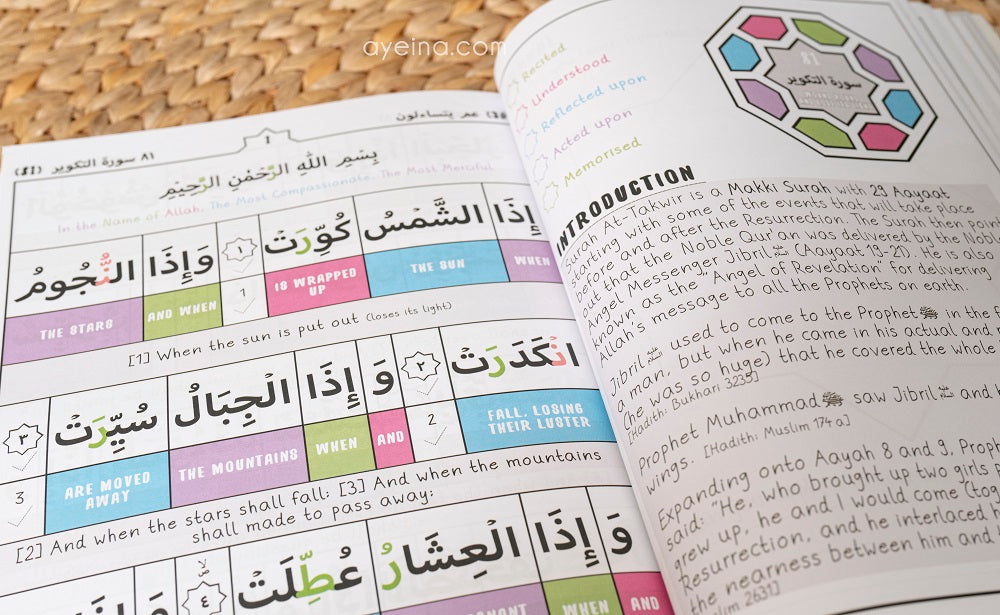 ayeina.com
(٣٠) عم يتساءلون
١
٨١ سورة التكوير (81)
بِسْمِ اللَّهِ الرَّحْمَٰنِ الرَّحِيْمِ
In the Name of Allah, The Most Compassionate, The Most Merciful
إِذَا الشَّمْسُ كُوِّرَتْ ١ وَإِذَا النُّجُومُ
WHEN THE SUN IS WRAPPED UP 1 AND WHEN THE STARS
[1] When the sun is put out (loses its light)
انْكَدَرَتْ ٢ وَ إِذَا الْجِبَالُ سُيِّرَتْ ٣
FALL, LOSING THEIR LUSTER 2 AND WHEN THE MOUNTAINS ARE MOVED AWAY 3
[2] And when the stars shall fall: [3] And when the mountains
shall made to pass away:
وَ إِذَا الْعِشَارُ عُطِّلَتْ ٤ وَإِذَا
AND WHEN
Recited
Understood
Reflected upon
Acted upon
Memorised
81
سورة التكوير
INTRODUCTION
Surah At-Takwir is a Makki Surah with 29 Aayaat
starting with some of the events that will take place
before and after the Resurrection. The Surah then
out that the Noble Qur'an was delivered by the Noble
Angel Messenger Jibril (Aayaat 19-21). He is also
known as the "Angel of Revelation" for delivering
Allah's message to all the Prophets on earth.
Jibril used to come to the Prophet ﷺ in the
a man, but when he came in his actual and
(he was so huge) that he covered the whole
[Hadith: Bukhari 3235]
Prophet Muhammad ﷺ saw Jibril and
wings. [Hadith: Muslim 174 a]
Expanding onto Aayah 8 and 9,
said: "He, who brought up two girls
grew up, he and I would come
Resurrection, and he interlaced
the nearness between him and
2631]